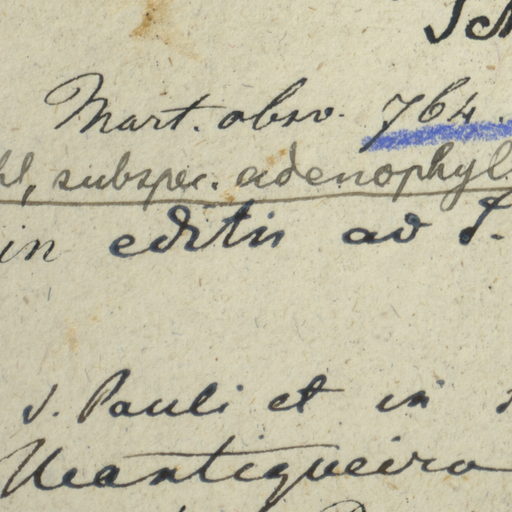 Mart. obsv. 764.
subspec. adenophyl
in editis ad S.
S. Pauli et in
Mantiqueira